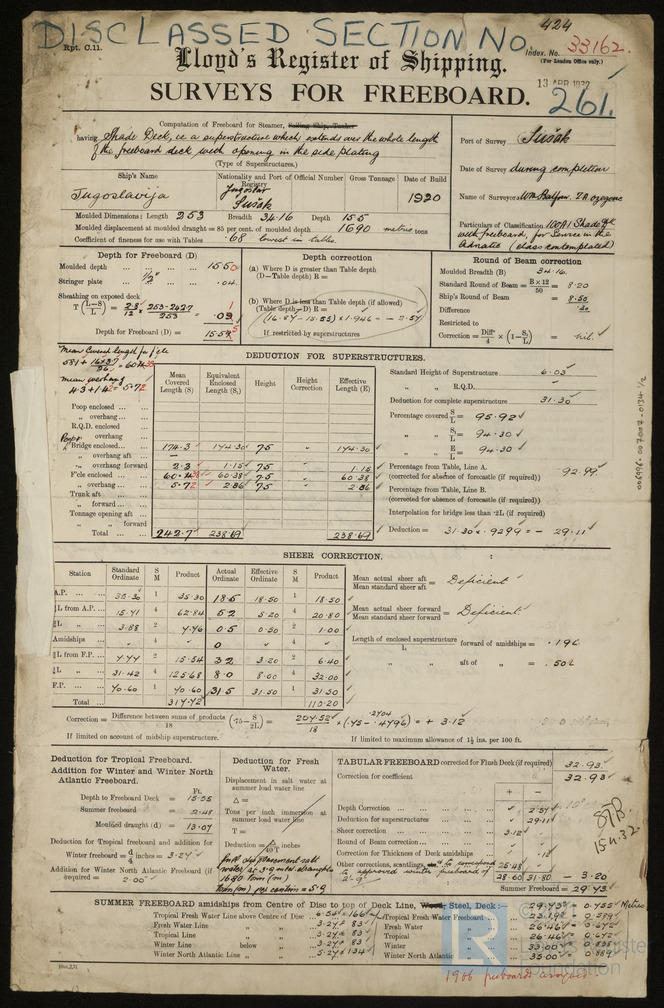 DISCLASSED SECTION No.
424
Rpt. C.11.
Index. No. 33162.
(For London Office only.)
Lloyd's Register of Shipping.
13 APR 1932
SURVEYS FOR FREEBOARD.
261.
Computation of Freeboard for Steamer, Sailing Ship, Tanker
having Shade Deck, i.e a superstructure which extends over the whole length
of the freeboard deck, with opening in the side plating
(Type of Superstructures.)
Port of Survey Sušak
Date of Survey during completion
Name of Surveyor Wm Balfour.
Particulars of Classification 100A1 Shade dk
with freeboard, for Service in the
Adriatic (class contemplated)
Ship's Name
Nationality and Port of Registry
Official Number
Gross Tonnage
Date of Build
Jugoslavija
Jugoslav
Sušak
1920
Moulded Dimensions: Length 253 Breadth 34.16 Depth 15.5
Moulded displacement at moulded draught = 85 per cent. of moulded depth 1690 metric tons
Coefficient of fineness for use with Tables .68 lowest in tables.
Depth for Freeboard (D)
Moulded depth ... 15.50
Stringer plate ... 1/2" ... .04
Sheathing on exposed deck
T (L-S / L) =
Depth for Freeboard (D) =
Depth correction
(a) Where D is greater than Table depth
(D—Table depth) R =
(b) Where D is less than Table depth (if allowed)
(Table depth—D) R =
(16.87 - 15.55) x 1.946 = - 2.57
If restricted by superstructures
Round of Beam correction
Moulded Breadth (B) 34.16
Standard Round of Beam = B×12/50 = 8.20
Ship's Round of Beam = 8.50
Difference .30
Restricted to
Correction = Diff/4 × (1-S/L) = nil.
DEDUCTION FOR SUPERSTRUCTURES.
Mean Covered length for f'cle
Mean overhang
4.3 + 1.42 = 5.72
Mean Covered Length (S)
Equivalent Enclosed Length (S₁)
Height
Height Correction
Effective Length (E)
Poop enclosed
„ overhang
R.Q.D. enclosed
„ overhang
Bridge enclosed 174.3 174.30 7.5 174.30
„ overhang aft —
„ overhang forward 2.3 1.15 7.5 1.15
F'cle enclosed 60.38 7.5 60.38
„ overhang 5.72 2.86 7.5 2.86
Trunk aft
„ forward
Tonnage opening aft
„ „ forward
Total 242.7 238.69 238.69
Standard Height of Superstructure 6.03
„ „ R.Q.D.
Deduction for complete superstructure 31.30
Percentage covered S/L = 95.92
„ „ S₁/L = 94.30
„ „ E/L = 94.30
Percentage from Table, Line A. 92.99
(corrected for absence of forecastle (if required))
Percentage from Table, Line B.
(corrected for absence of forecastle (if required))
Interpolation for bridge less than ·2L (if required)
Deduction = 31.30 x .9299 = - 29.11
SHEER CORRECTION.
Station
Standard Ordinate
S M
Product
Actual Ordinate
Effective Ordinate
S M
Product
A.P. 35.30 1 35.30 18.5 18.50 1 18.50
⅙L from A.P. 15.71 4 62.84 5.2 5.20 4 20.80
⅓L „ 3.88 2 7.76 0.5 0.50 2 1.00
Amidships 4 0 4
⅓L from F.P. 7.77 2 15.54 3.2 3.20 2 6.40
⅙L „ 31.42 4 125.68 8.0 8.00 4 32.00
F.P. 70.60 1 70.60 31.5 31.50 1 31.50
Total 317.72 110.20
Mean actual sheer aft / Mean standard sheer aft = Deficient
Mean actual sheer forward / Mean standard sheer forward = Deficient
Length of enclosed superstructure / L forward of amidships =
„ „ aft of „ =
Correction = Difference between sums of products / 18 (·75 - S/2L) = 207.52/18 x (.75 - .4796) = + 3.12
If limited on account of midship superstructure.
If limited to maximum allowance of 1½ ins. per 100 ft.
Deduction for Tropical Freeboard.
Addition for Winter and Winter North
Atlantic Freeboard.
Ft.
Depth to Freeboard Deck = 15.55
Summer freeboard = 2.48
Moulded draught (d) = 13.07
Deduction for Tropical freeboard and addition for
Winter freeboard = d/4 inches = 3.27
Addition for Winter North Atlantic Freeboard (if
required) = 2.00
Deduction for Fresh
Water.
Displacement in salt water at
summer load water line
Δ =
Tons per inch immersion at
summer load water line
T =
Deduction = Δ/40T inches
Full displacement salt
water at 3.9 metre draught =
Tons (m) per centim = 5.9
TABULAR FREEBOARD corrected for Flush Deck (if required) 32.93
Correction for coefficient 32.93
+ -
Depth Correction 2.57
Deduction for superstructures 29.11
Sheer correction 3.12
Round of Beam correction
Correction for Thickness of Deck amidships .12
Other corrections, scantlings, to correspond 25.48
to approved winter freeboard of
2'-9" 28.60 31.80 - 3.20
Summer Freeboard = 29.73
STB.
15.4.32.
SUMMER FREEBOARD amidships from Centre of Disc to top of Deck Line, Wood, Steel, Deck:—
29.73 = 0.755 Metres
Tropical Fresh Water Line above Centre of Disc 6.54 = 166
Fresh Water Line „ „ 3.27 = 83
Tropical Line „ „ 3.27 = 83
Winter Line below „ 3.27 = 83
Winter North Atlantic Line „ „ 5.27 = 134
Tropical Fresh Water Freeboard 0.589
Fresh Water „ 26.46 = 0.672
Tropical „ 26.46 = 0.672
Winter „ 33.00 = 0.838
Winter North Atlantic „ 35.00 = 0.889
1966 freeboards assigned
LR
Lloyd's Register
Foundation